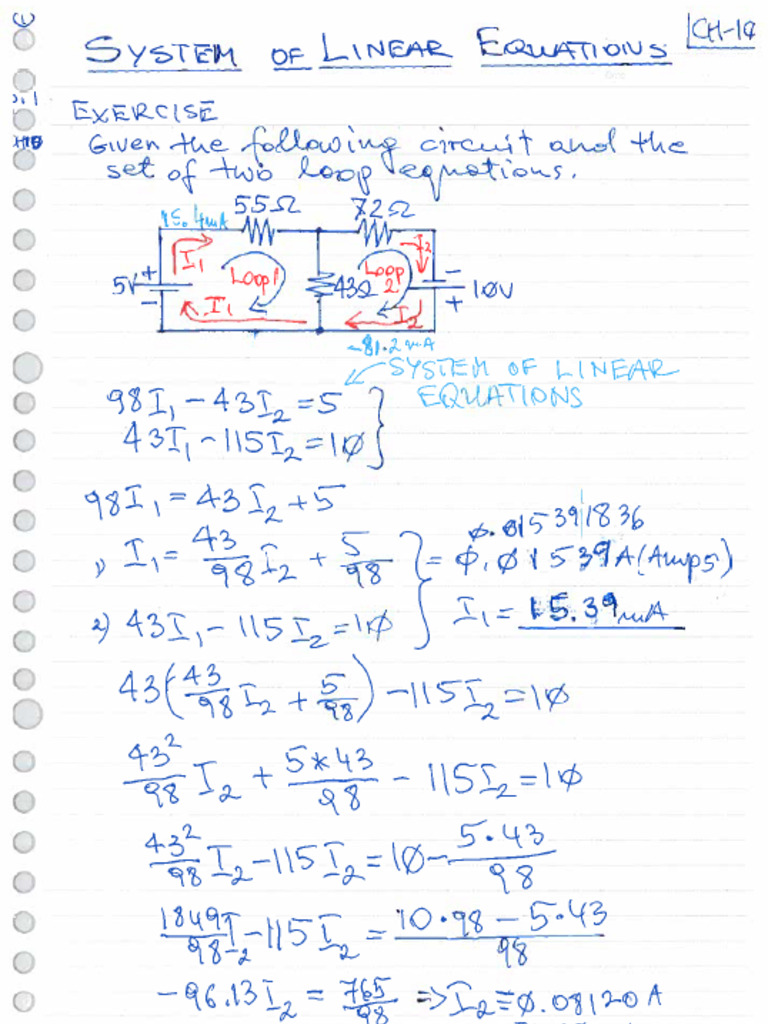 CH-10
SYSTEM OF LINEAR EQUATIONS
EXERCISE
Given the following circuit and the
set of two loop equations.
15.4mA 55Ω 72Ω
I₁ I₂
5V + − Loop 1 43Ω Loop 2 − + 10V
I₁ I₂
-81.2mA
SYSTEM OF LINEAR
EQUATIONS
98I₁ − 43I₂ = 5
43I₁ − 115I₂ = 10
98I₁ = 43I₂ + 5
1) I₁ = 43/98 I₂ + 5/98
0.015391836
= 0.01539A (Amps)
2) 43I₁ − 115I₂ = 10
I₁ = 15.39mA
43(43/98 I₂ + 5/98) − 115I₂ = 10
43²/98 I₂ + 5*43/98 − 115I₂ = 10
43²/98 I₂ − 115I₂ = 10 − 5·43/98
1849/98 I₂ − 115I₂ = 10·98 − 5·43/98
−96.13I₂ = 765/98 => I₂ = 0.08120A